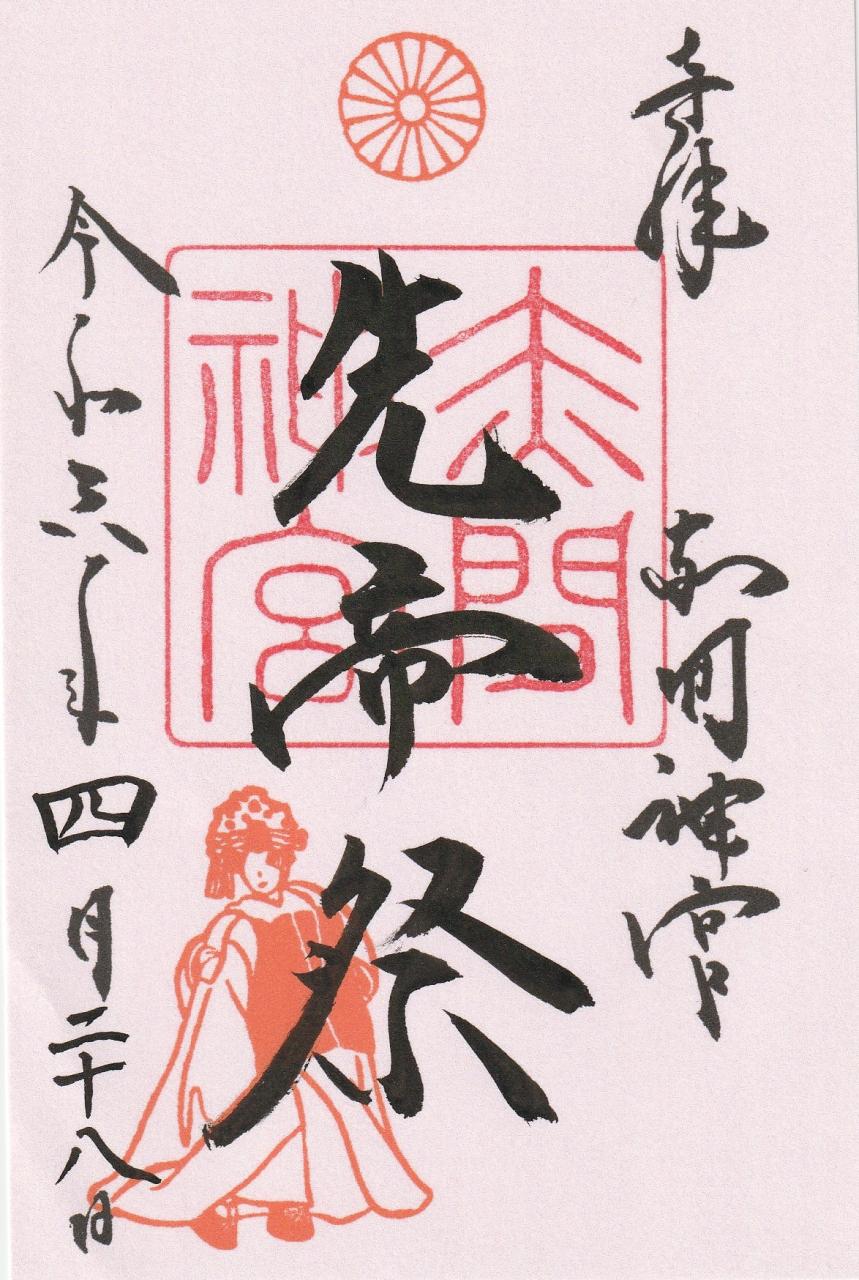 奉拝
赤間神宮
先帝祭
赤間
神宮
令和六年四月二十八日